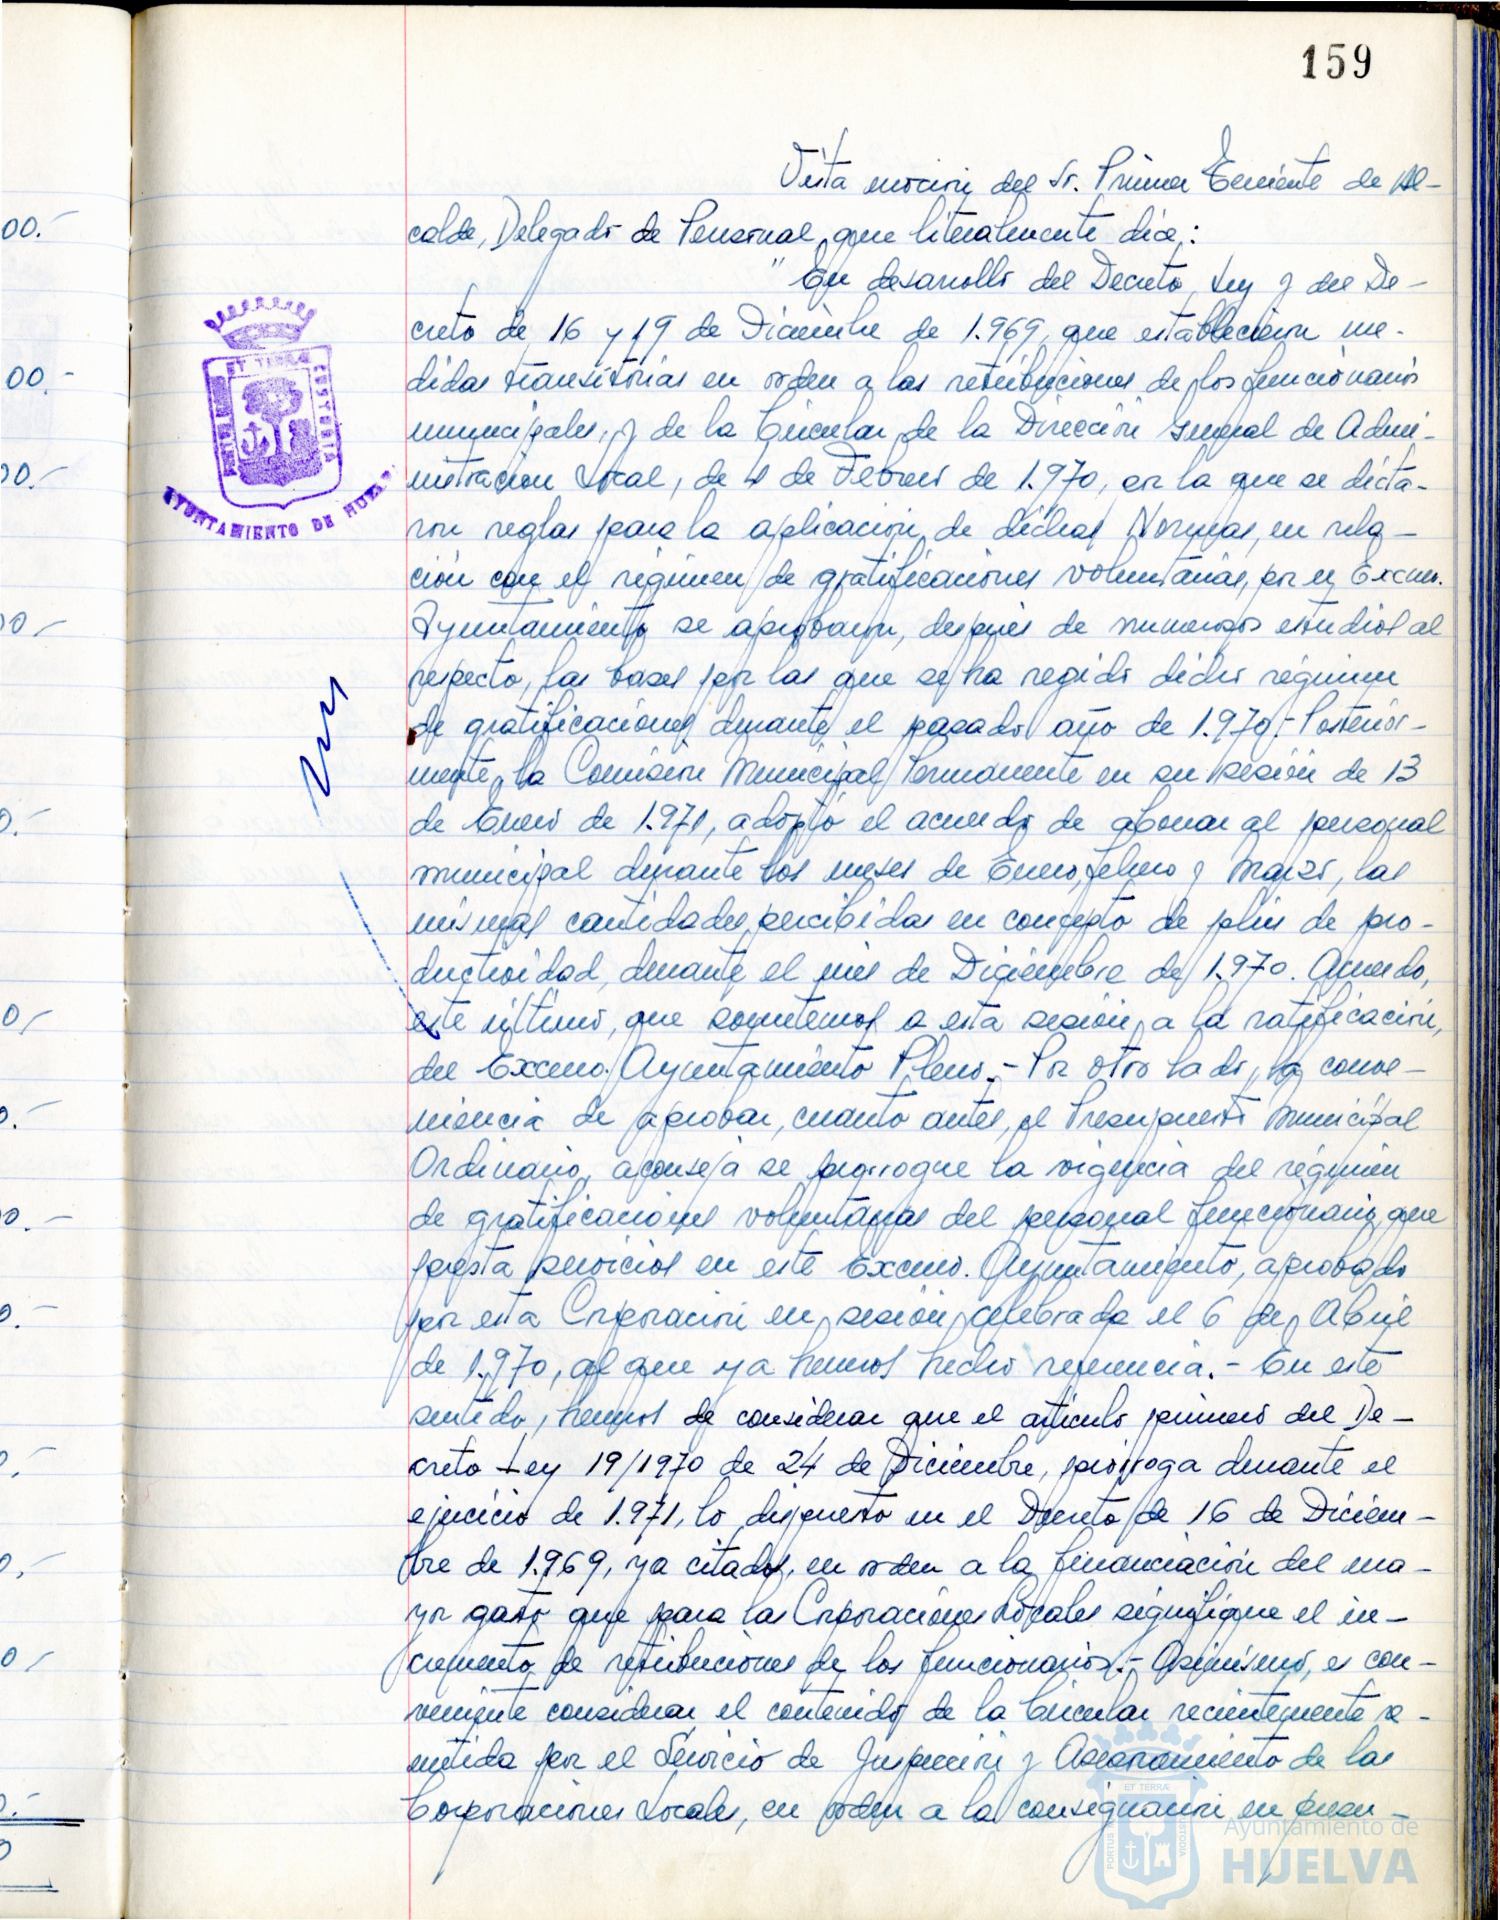 159
Vista moción del Sr. Primer Teniente de Al-
calde, Delegado de Personal, que literalmente dice:
"En desarrollo del Decreto Ley y del De-
creto de 16 y 19 de Diciembre de 1.969, que establecieron me-
didas transitorias en orden a las retribuciones de los funcionarios
municipales, y de la Circular de la Dirección General de Admi-
nistración Local, de de Febrero de 1.970, en la que se dicta-
ron reglas para la aplicación de dichas Normas, en rela-
ción con el régimen de gratificaciones voluntarias, por el Excmo.
Ayuntamiento se aprobaron, después de numerosos estudios al
respecto, las bases por las que se ha regido dicho régimen
de gratificaciones durante el pasado año de 1.970.- Posterior-
mente, la Comisión Municipal Permanente en su sesión de 13
de Enero de 1.971, adoptó el acuerdo de abonar al personal
municipal durante los meses de Enero, febrero y Marzo, las
mismas cantidades percibidas en concepto de plus de pro-
ductividad, durante el mes de Diciembre de 1.970. Acuerdo,
este último, que sometemos a esta sesión, a la ratificación,
del Excmo. Ayuntamiento Pleno.- Por otro lado, la conve-
niencia de aprobar, cuanto antes, el Presupuesto Municipal
Ordinario, aconseja se prorrogue la vigencia del régimen
de gratificaciones voluntarias del personal funcionario, que
presta servicios en este Excmo. Ayuntamiento, aprobado
por esta Corporación en sesión celebrada el 6 de Abril
de 1.970, al que ya hemos hecho referencia.- En este
sentido, hemos de considerar que el artículo primero del De-
creto-Ley 19/1970 de 24 de Diciembre, prorroga durante el
ejercicio de 1.971, lo dispuesto en el Decreto de 16 de Diciem-
bre de 1.969, ya citados, en orden a la financiación del ma-
yor gasto que para las Corporaciones Locales signifique el in-
cremento de retribuciones de los funcionarios.- Asimismo, es con-
veniente considerar el contenido de la Circular recientemente re-
mitida por el Servicio de Inspección y Asesoramiento de las
Corporaciones Locales, en orden a la consignación en presu-
AYUNTAMIENTO DE HUELVA
ET TERRAE
CUSTODIA
00.-
00.-
00.-
Ayuntamiento de
HUELVA